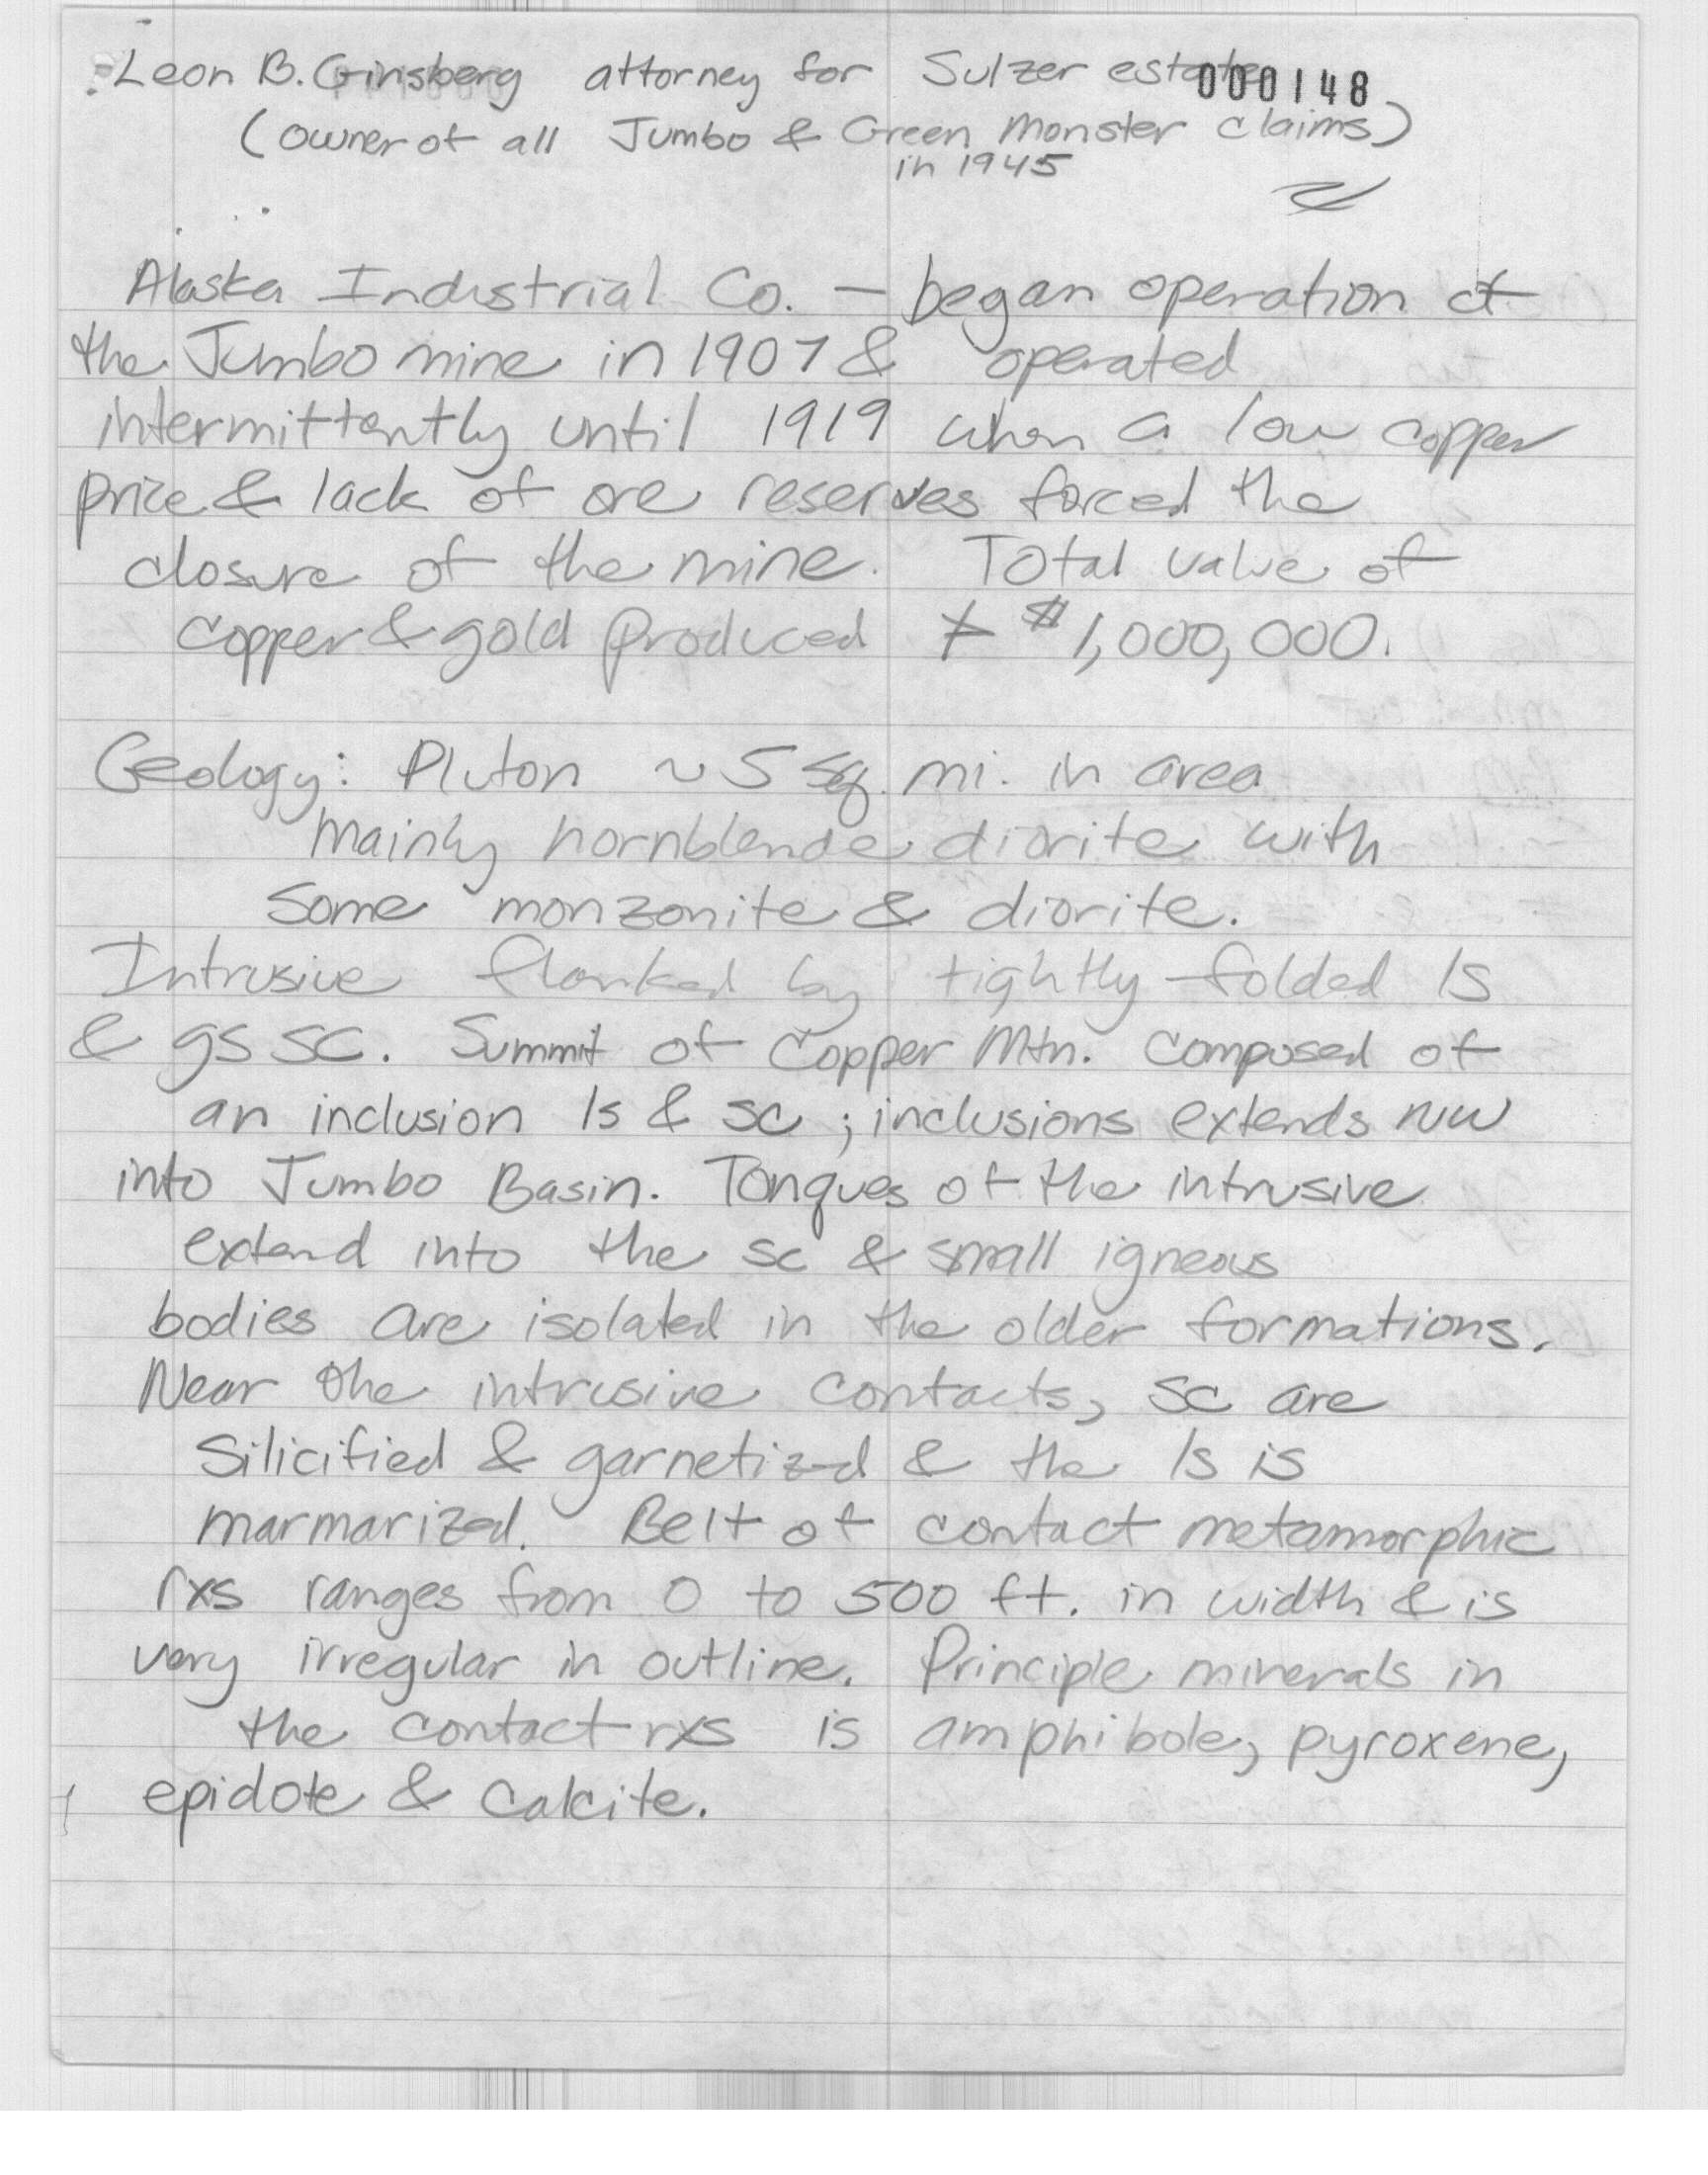 Leon B. Ginsberg attorney for Sulzer estate 000148
(owner of all Jumbo & Green Monster claims)
in 1945
Alaska Industrial Co. — began operation at
the Jumbo mine in 1907 & operated
intermittently until 1919 when a low copper
price & lack of ore reserves forced the
closure of the mine. Total value of
copper & gold produced $1,000,000.
Geology: Pluton ~ 5 sq. mi. in area
mainly hornblende diorite with
some monzonite & diorite.
Intrusive flanked by tightly folded ls
& gs sc. Summit of Copper Mtn. composed of
an inclusion ls & sc ; inclusions extends NW
into Jumbo Basin. Tongues of the intrusive
extend into the sc & small igneous
bodies are isolated in the older formations.
Near the intrusive contacts, sc are
silicified & garnetized & the ls is
marmarized. Belt of contact metamorphic
rxs ranges from 0 to 500 ft. in width & is
very irregular in outline. Principle minerals in
the contact rxs is amphibole, pyroxene,
epidote & calcite.